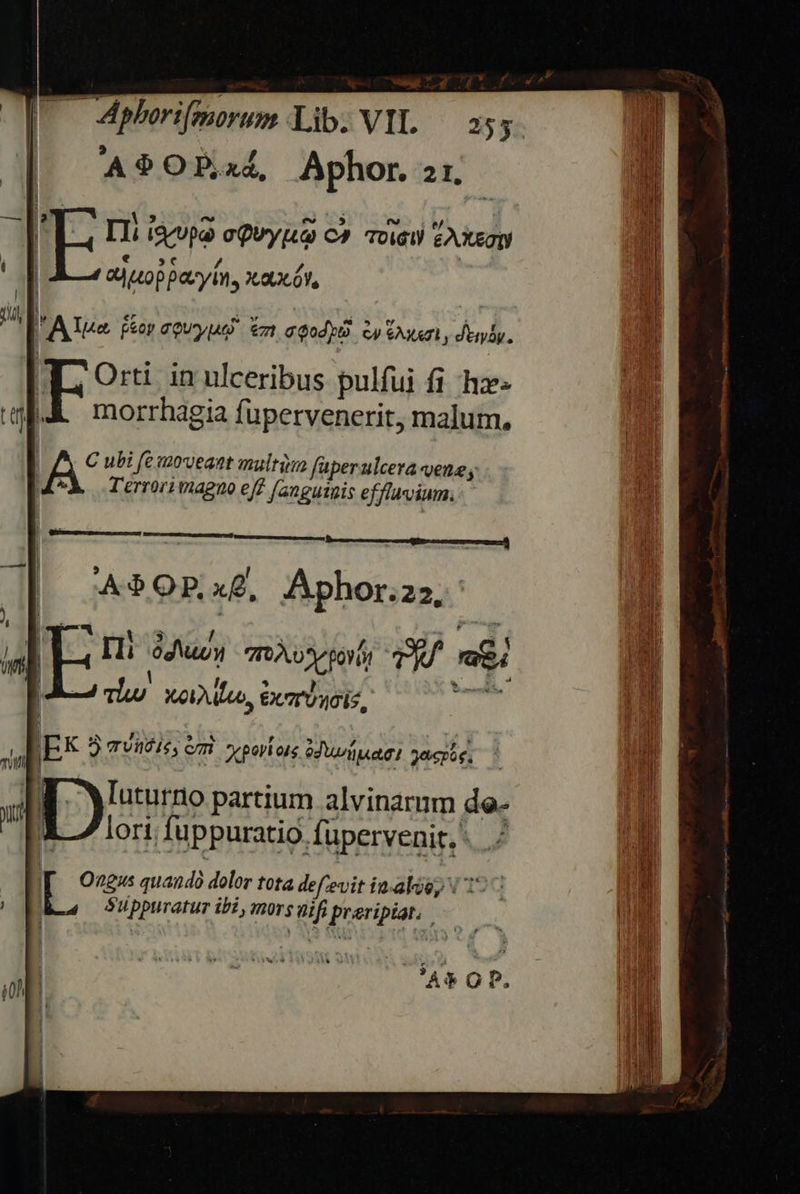 Aphoriſmorum Lib. VII. 255.
ἈΦΟΡ. κά, Aphor. 21.
ἘΠὶ ἰσχυρῷ σφυγμῷ ἐν τοῖσιν ἕλκεσιν
αἱμοῤῥαγίη, κακόν.
Αἷμα ῥέον σφυγμῷ ἐπὶ σφοδρῷ ἐν ἕλκεσι, δεινόν.
FOrti in ulceribus pulſui ſi hæ-
morrhagia ſupervenerit, malum.
AC ubi ſe moveant multùm ſuper ulcera venæ,
Terrori magno eſt ſanguinis effluvium.
ἈΦΟΡ. κβ, Aphor. 22,
ἘΠὶ ὀδύνῃ πολυχρονίῃ τῶν περὶ
τὴν κοιλίην, ἐκπύησις,
ἘΚ πύησις, ἐπὶ χρονίοις ὀδυνήμασι γαστρός.
DIuturno partium alvinarum do-
lori ſuppuratio ſupervenit.
LOngus quandò dolor tota deſævit in alvo,
Suppuratur ibi, mors niſi præripiat.
ἈΦΟΡ.